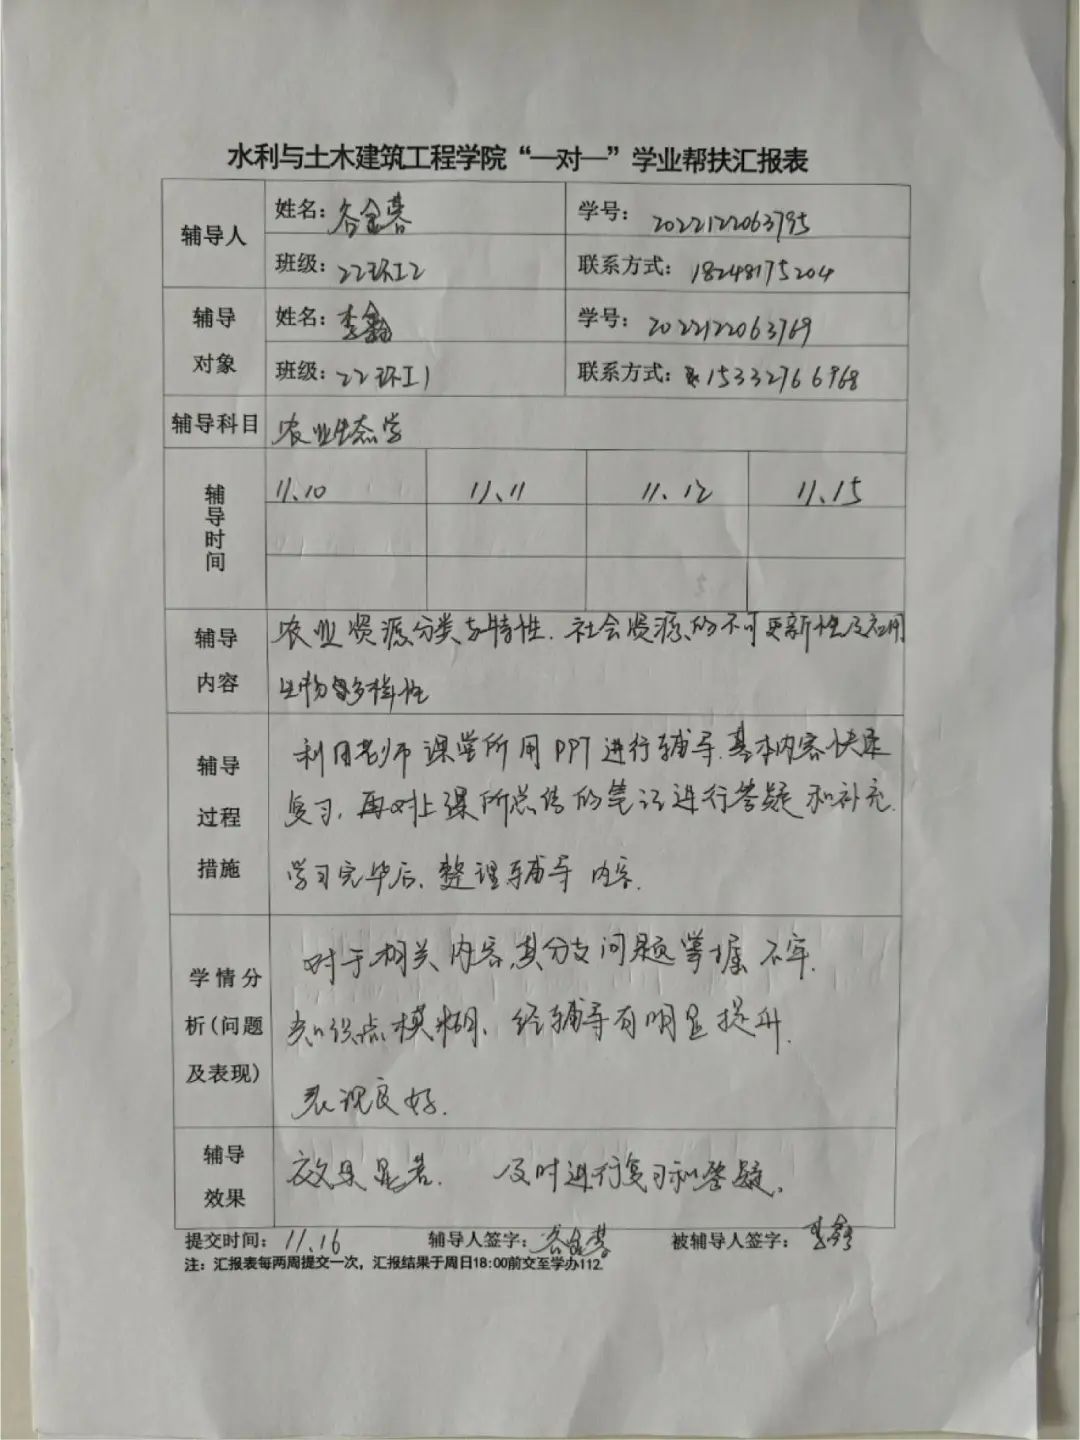 水利与土木建筑工程学院“一对一”学业帮扶汇报表
辅导人
姓名：谷金蓉
学号：2022122063795
班级：22环工2
联系方式：18248175204
辅导对象
姓名：李鑫
学号：2022122063769
班级：22环工1
联系方式：15332766968
辅导科目
农业生态学
辅导时间
11、10
11、11
11、12
11、15
辅导内容
农业资源分类与特性．社会资源的不可更新性及应用
生物多样性
辅导过程措施
利用老师课堂所用PPT进行辅导．基本内容快速
复习，再对上课所总结的笔记进行答疑和补充．
学习完毕后、整理辅导内容．
学情分析（问题及表现）
对于相关内容，其分支问题掌握不牢．
知识点模糊、经辅导有明显提升．
表现良好．
辅导效果
效果显著．及时进行复习和答疑。
提交时间：11.16
辅导人签字：谷金蓉
被辅导人签字：李鑫
注：汇报表每两周提交一次，汇报结果于周日18:00前交至学办112.